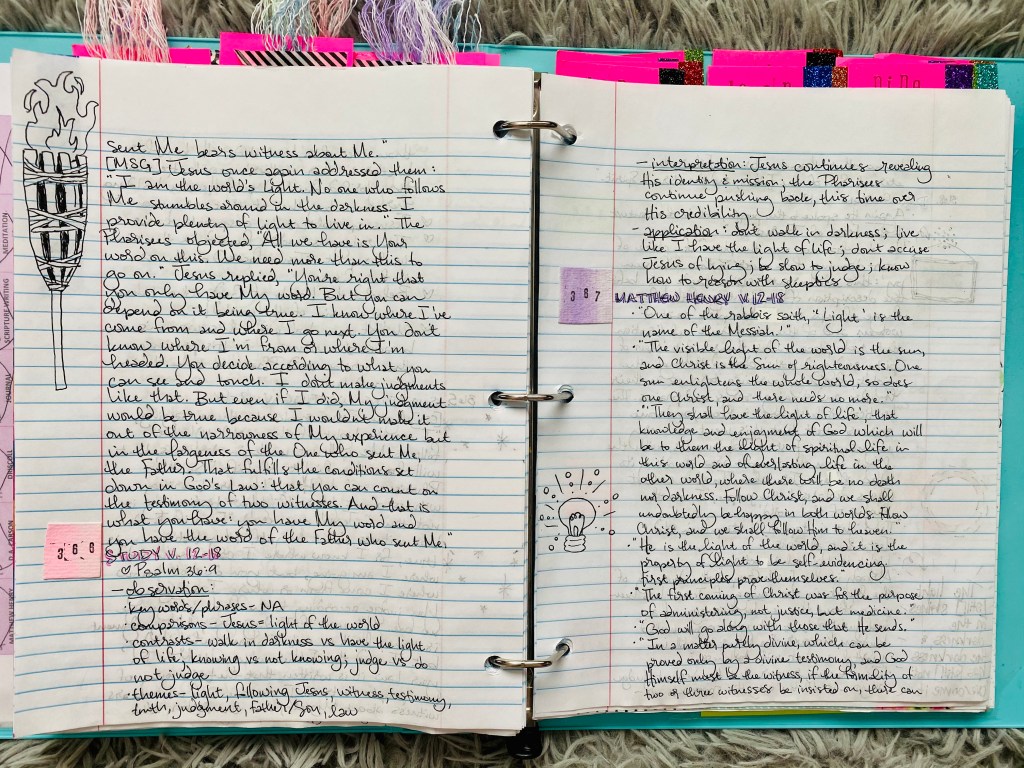 sent Me bears witness about Me."
[MSG] Jesus once again addressed them:
"I am the world's Light. No one who follows
Me stumbles around in the darkness. I
provide plenty of light to live in." The
Pharisees objected, "All we have is Your
word on this. We need more than this to
go on." Jesus replied, "You're right that
you only have My word. But you can
depend on it being true. I know where I've
come from and where I go next. You don't
know where I'm from or where I'm
headed. You decide according to what you
can see and touch. I don't make judgments
like that. But even if I did, My judgment
would be true because I wouldn't make it
out of the narrowness of My experience but
in the largeness of the One who sent Me,
the Father. That fulfills the conditions set
down in God's Law: that you can count on
the testimony of two witnesses. And that is
what you have: you have My word and
you have the word of the Father, who sent Me."
366
STUDY V. 12-18
♡ Psalm 36:9
- observation:
· key words/phrases - NA
· comparisons - Jesus = light of the world
· contrasts - walk in darkness vs have the light
of life; knowing vs not knowing; judge vs do
not judge
· themes - light, following Jesus, witness, testimony,
truth, judgment, father/Son, law
MEDITATION
SCRIPTURE WRITING
JOURNAL
D.A. CARSON
MATTHEW HENRY
- interpretation: Jesus continues revealing
His identity & mission; the Pharisees
continue pushing back, this time over
His credibility
- application: don't walk in darkness; live
like I have the light of life; don't accuse
Jesus of lying; be slow to judge; know
how to reason with skeptics
367
MATTHEW HENRY V. 12-18
· "One of the rabbis saith, 'Light' is the
name of the Messiah.'"
· "The visible light of the world is the sun,
and Christ is the Sun of righteousness. One
sun enlightens the whole world, so does
one Christ, and there needs no more."
· "'They shall have the light of life', that
knowledge and enjoyment of God which will
be to them the light of spiritual life in
this world and of everlasting life in the
other world, where there will be no death
nor darkness. Follow Christ, and we shall
undoubtedly be happy in both worlds. Follow
Christ, and we shall follow Him to heaven."
· "He is the light of the world, and it is the
property of light to be self-evidencing.
First principles prove themselves."
· "The first coming of Christ was for the purpose
of administering, not justice, but medicine."
· "God will go along with those that He sends."
· "In a matter purely divine, which can be
proved only by a divine testimony, and God
Himself must be the witness, if the formality of
two or three witnesses be insisted on, there can